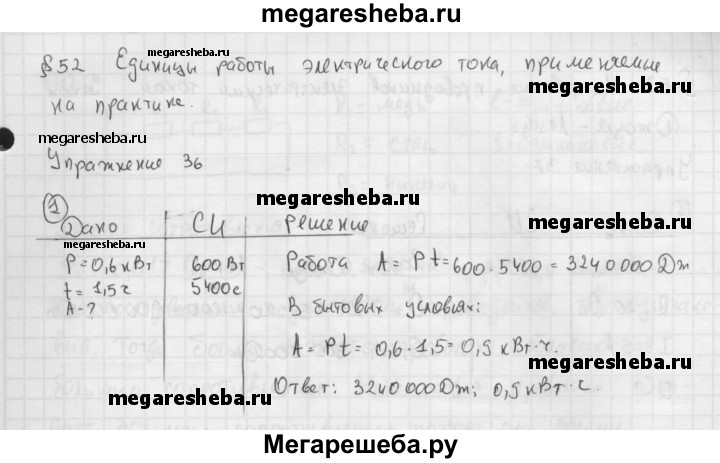 megaresheba.ru
§52 Единицы работы электрического тока, применяемые
megaresheba.ru
на практике.
megaresheba.ru
megaresheba.ru
Упражнение 36
megaresheba.ru
megaresheba.ru
1
Дано СИ решение
P = 0,6 кВт 600 Вт Работа A = Pt = 600 · 5400 = 3240000 Дж
t = 1,5 ч 5400 с
A - ? В бытовых условиях:
megaresheba.ru
megaresheba.ru
A = Pt = 0,6 · 1,5 = 0,9 кВт·ч.
megaresheba.ru
Ответ: 3240000 Дж; 0,9 кВт·ч.
megaresheba.ru
megaresheba.ru
Мегарешеба.ру